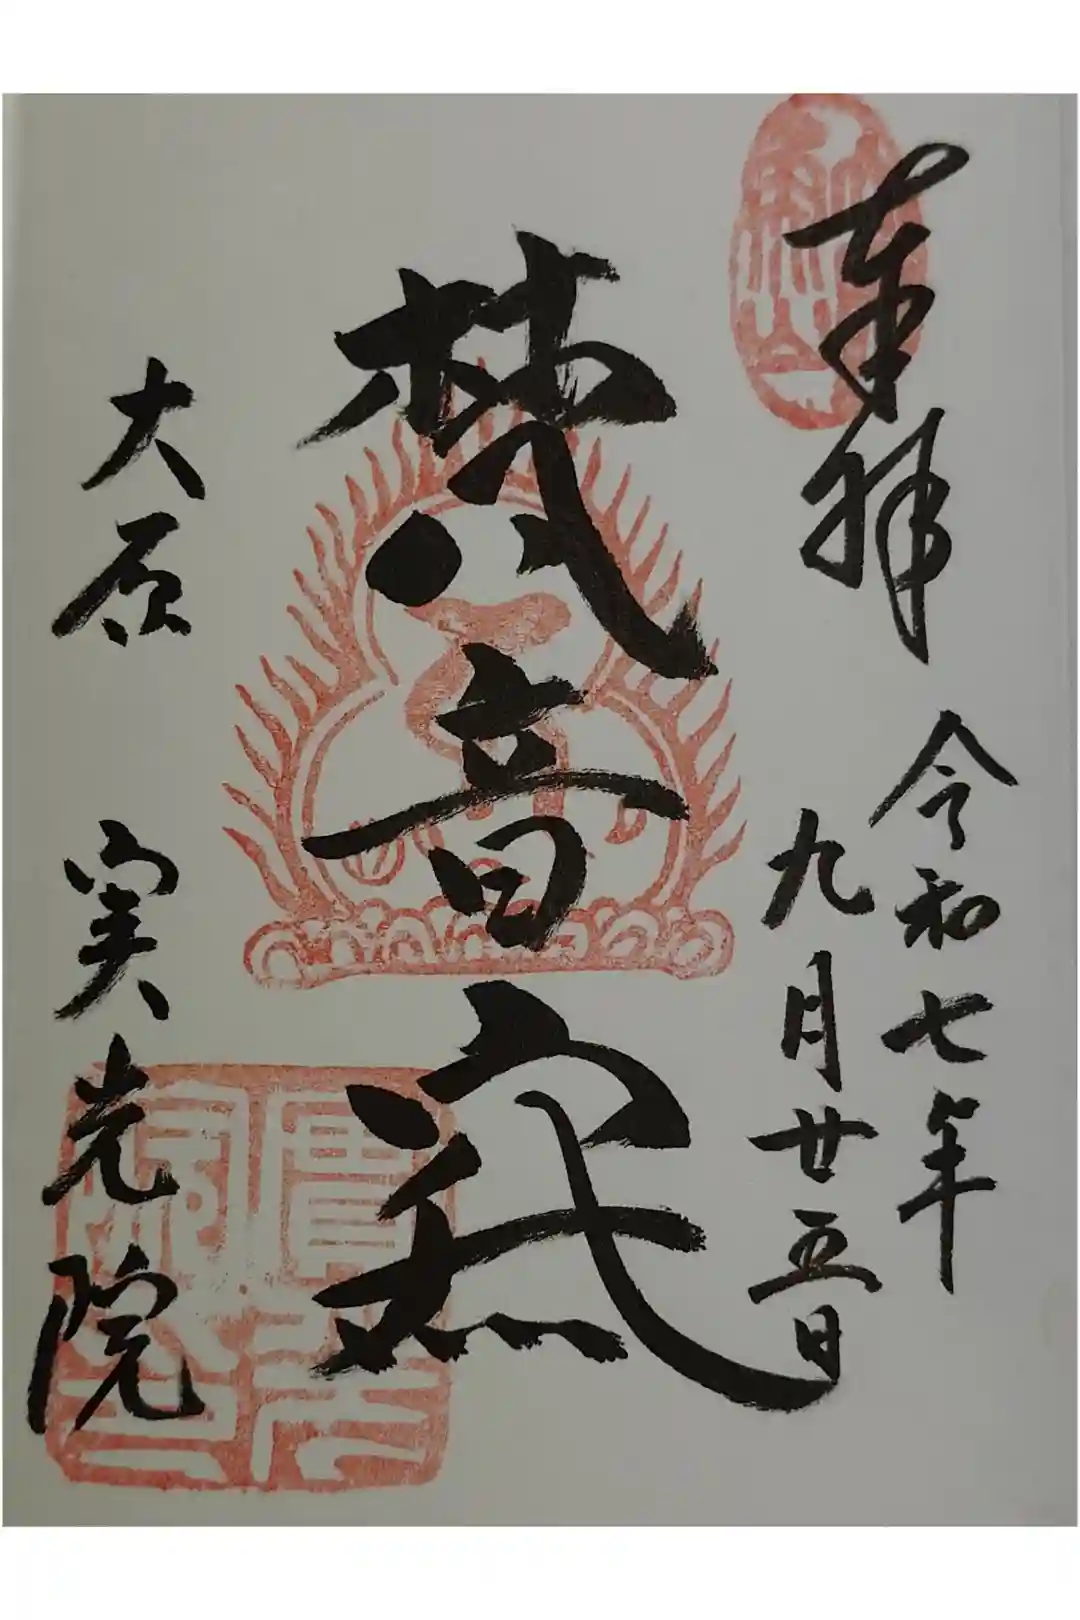 奉拝
令和七年
九月廿五日
梵音
大原 実光院
實光
院印